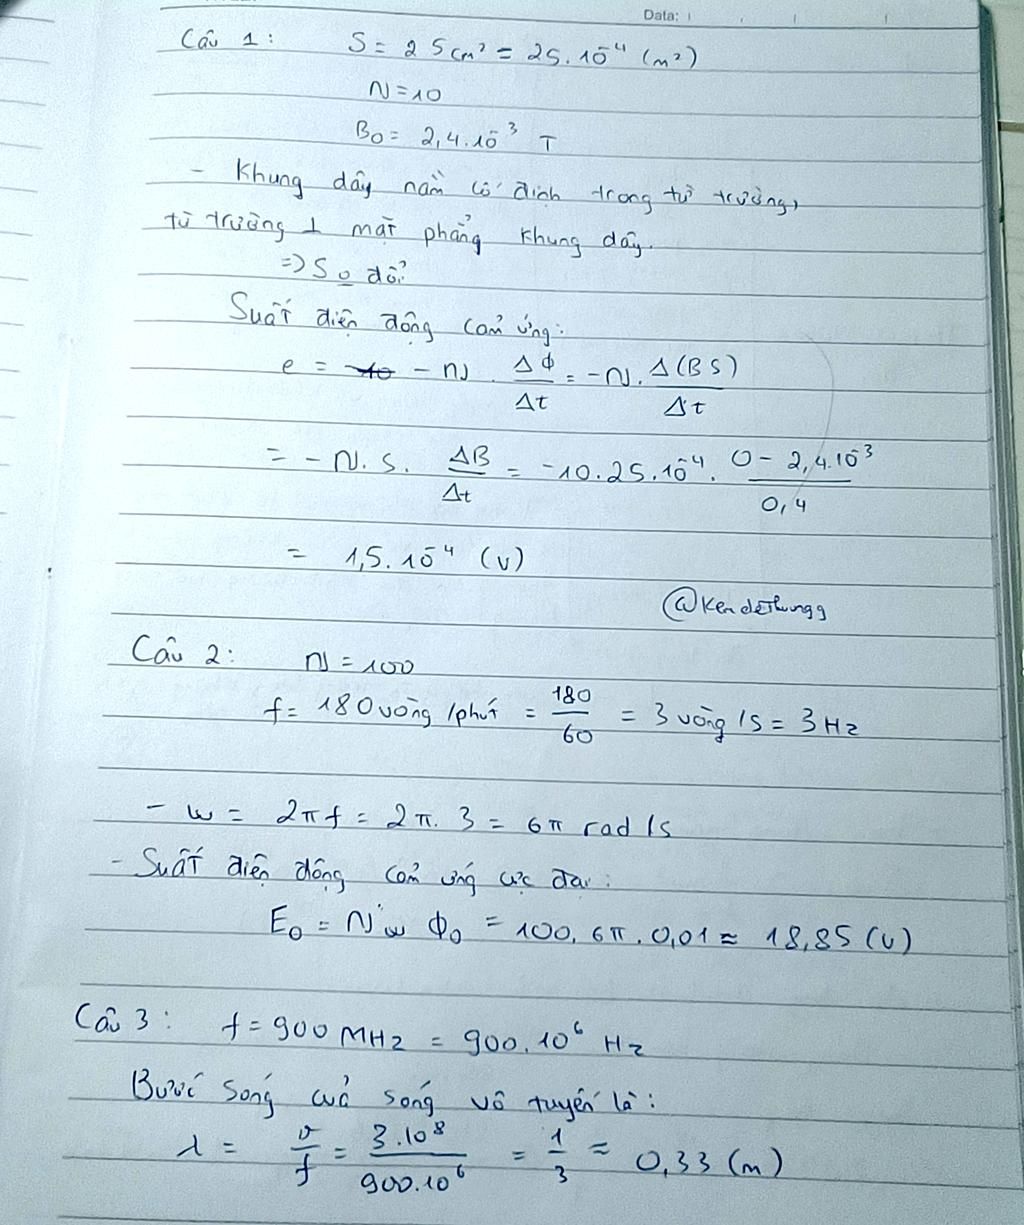 Data:
Câu 1: S = 25cm² = 25.10⁻⁴ (m²)
N = 10
B0 = 2,4.10⁻³ T
- Khung dây nằm cố định trong từ trường,
từ trường ⊥ mặt phẳng khung dây.
=> S o đổi
Suất điện động cảm ứng:
e = - N . ΔΦ/Δt = - N . Δ(BS)/Δt
= - N. S. ΔB/Δt = -10.25.10⁻⁴. (0 - 2,4.10⁻³)/0,4
= 1,5.10⁻⁴ (V)
@Kendethungg
Câu 2: N = 100
f = 180 vòng /phút = 180/60 = 3 vòng /s = 3 Hz
- ω = 2πf = 2π. 3 = 6π rad /s
- Suất điện động cảm ứng cực đại:
E0 = N ω Φ0 = 100. 6π. 0,01 ≈ 18,85 (V)
Câu 3: f = 900 MHz = 900.10⁶ Hz
Bước sóng của sóng vô tuyến là:
λ = v/f = 3.10⁸/900.10⁶ = 1/3 ≈ 0,33 (m)